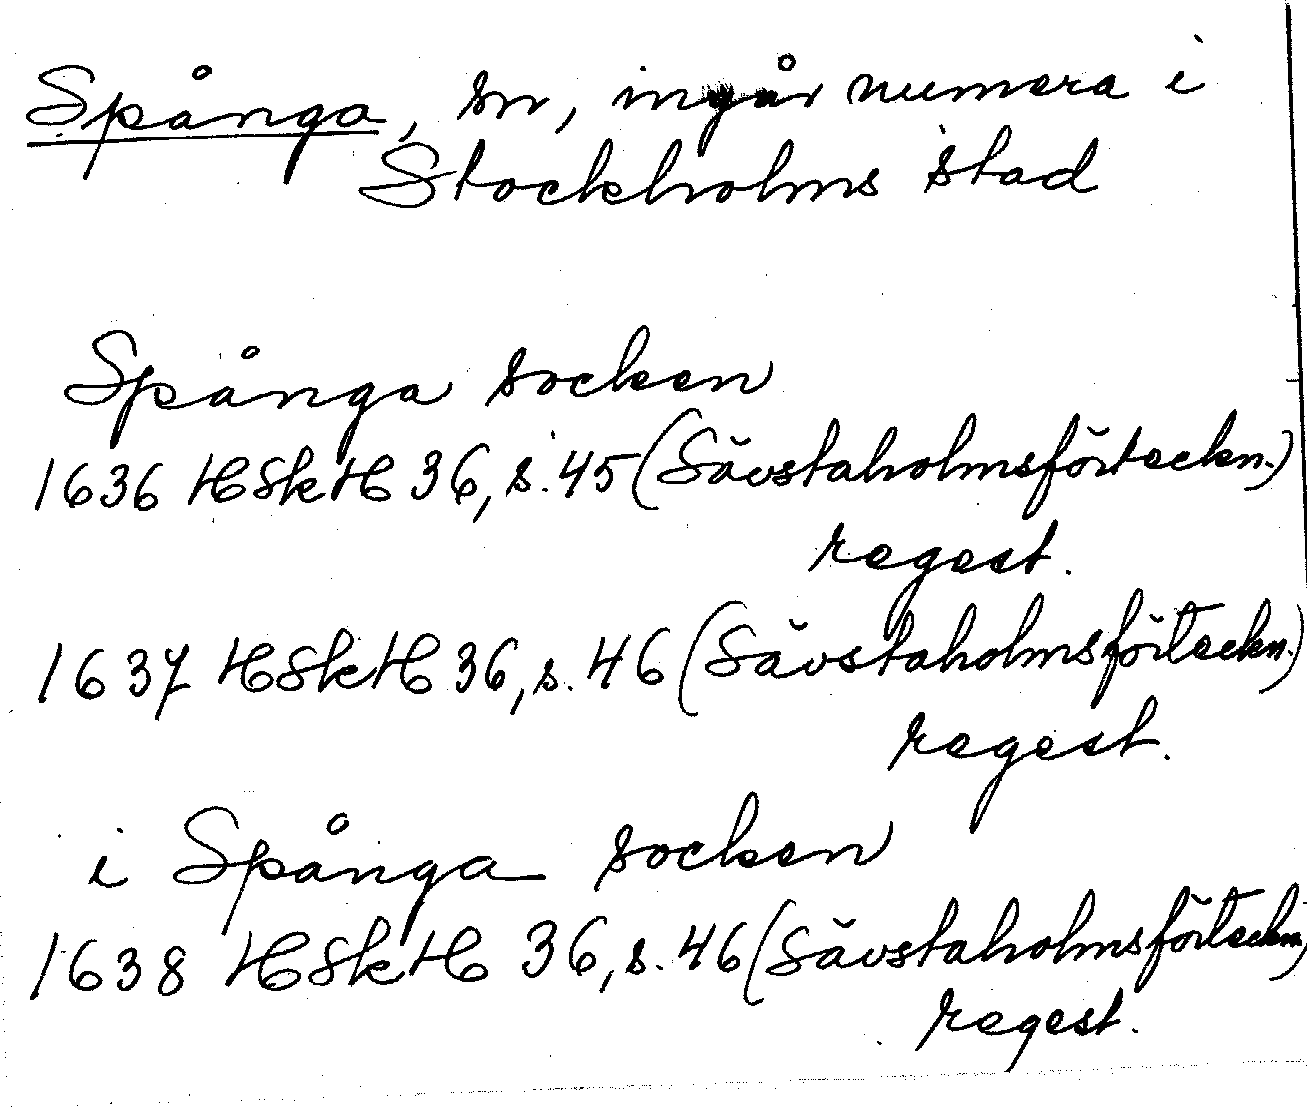 Spånga, sn, ingår numera i
Stockholms stad
Spånga socken
1636 HSkH 36, s. 45 (Sävstaholmsförteckn.)
regest.
1637 HSkH 36, s. 46 (Sävstaholmsförteckn.)
regest.
i Spånga socken
1638 HSkH 36, s. 46 (Sävstaholmsförteckn.)
regest.